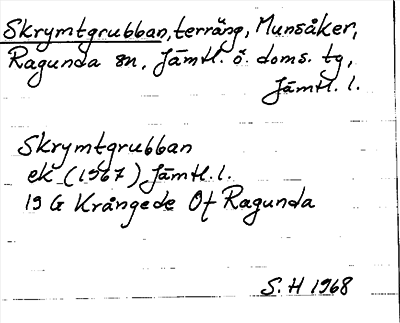 Skrymtgrubban, terräng, Munsåker,
Ragunda sn, Jämtl. ö. doms. tg,
Jämtl. l.
Skrymtgrubban
ek (1967) Jämtl. l.
19 G Krångede Of Ragunda
S. H 1968